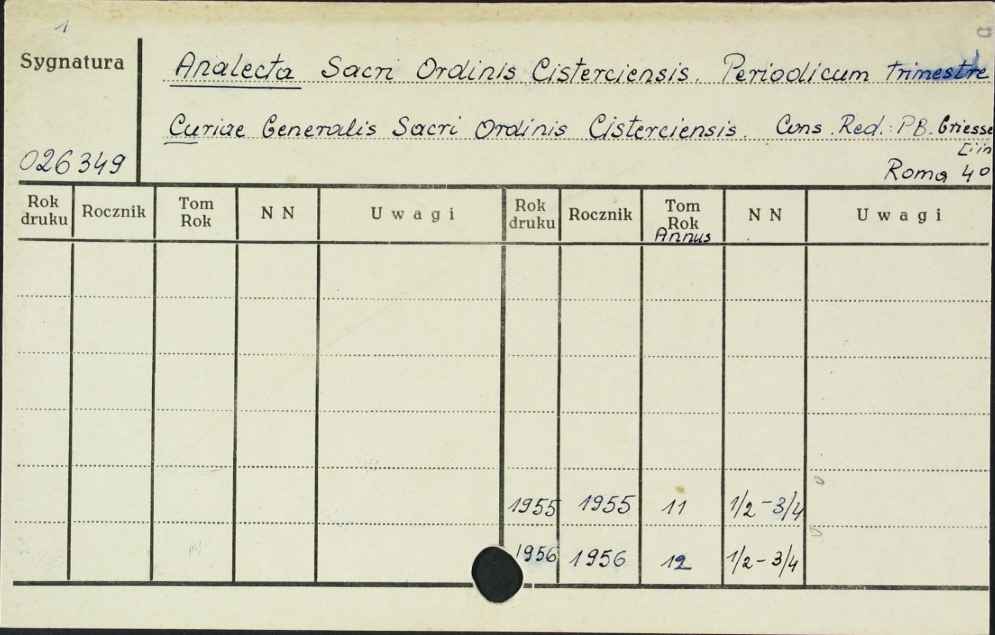 1
Sygnatura
Analecta Sacri Ordinis Cisterciensis. Periodicum trimestre
Curiae Generalis Sacri Ordinis Cisterciensis. Cons. Red.: P.B. Griesse
[iin
026349
Roma 4°
Rok druku Rocznik Tom Rok N N Uwagi Rok druku Rocznik Tom Rok Annus N N Uwagi
1955 1955 11 1/2-3/4
1956 1956 12 1/2-3/4